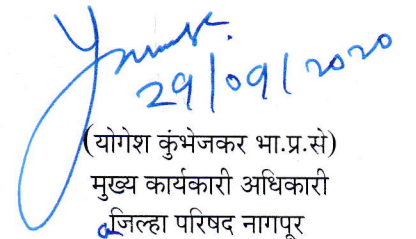 29/09/2020
(योगेश कुंभेजकर भा.प्र.से)
मुख्य कार्यकारी अधिकारी
जिल्हा परिषद नागपूर